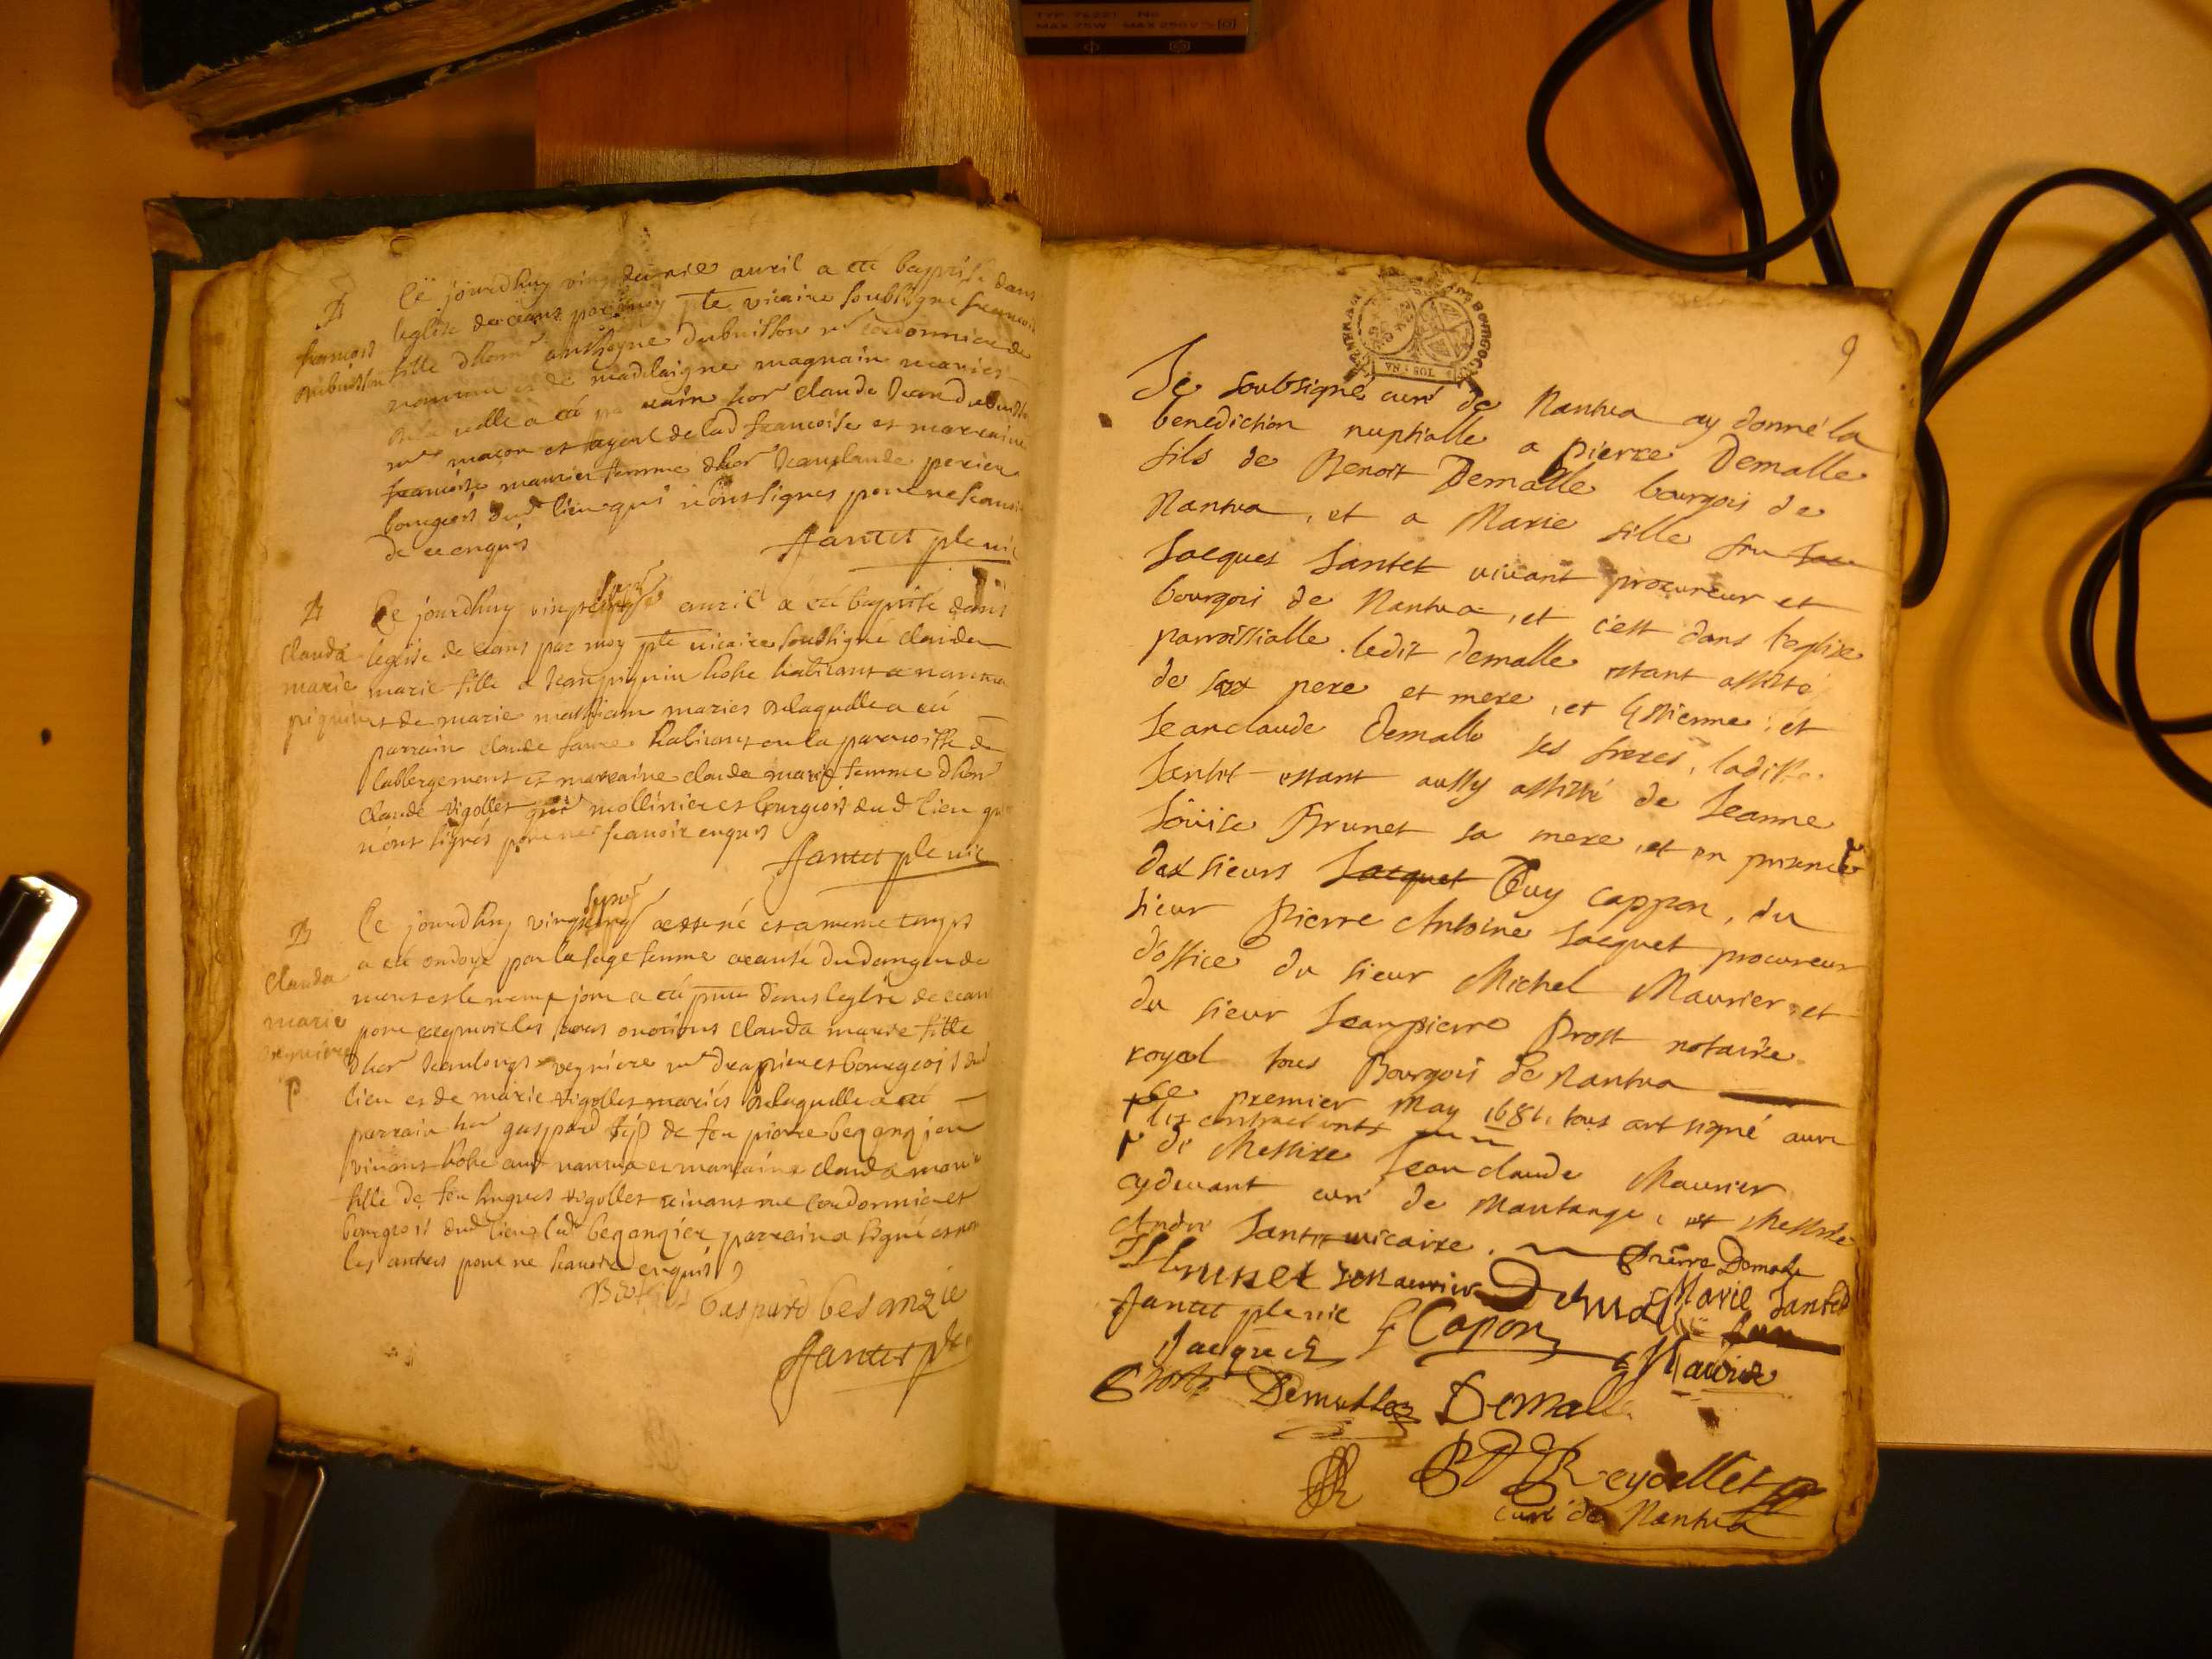 B
françois
dubuisson
Ce jourdhuy vingt auril a eté baptisé dans
leglise de ceans par moy pte vicaire soubsigné francoise
fille dhonr anthoyne dubuisson mr cordonnier de
nantua et de madelaigne magnain mariés
de la elle a eté parrain hor claude Jean dubuisson
mre maçon et ayeul de lad francoise et marraine
francoise maurier femme dhor Jeanclaude perier
bourgeois dud lieu qui nont signes pour ne scauoir
de ce enquis
Jantet pte vic
B
Clauda
marie
piquin
Ce jourdhuy vingt auril a eté baptisé dans
leglise de ceans par moy pte uicaire soubsigné clauda
marie fille a Jean piquin hoste habitant a nantua
et de marie mathiam mariés de laquelle a eté
parrain claude faure habitant en la parroisse de
labbergement et marraine clauda marie femme dhonr
claude vigollet mollinier et bourgeois du d lieu qui
nont signés pour ne scauoir enquis
Jantet pte vic
B
Clauda
marie
p
Ce jourdhuy vingt sept est né et a meme temps
a eté ondoyé par la sage femme a cause du danger de
mort et le meme jour a eté dans leglise de ceans
pour les clauda marie fille
dhor mre drappier et bourgeois dud
lieu et de marie vigollet mariés de laquelle a eté
parrain hor gaspard fils de feu pierre begangier
viuant hoste aud nantua et marraine clauda marie
fille de feu hugues vigollet viuant mre cordonnier et
bourgeois dud lieu led begangier parrain a signé et non
les autres pour ne scauoir enquis
Gaspard besanzie
Jantet pte
9
GENERA
BOURGOG
Je soubsigné curé de Nantua ay donné la
benediction nuptialle a pierre Demalle
fils de Benoit Demalle bourgois de
Nantua, et a Marie fille feu Jac
Jacques Jantet viuant procureur et
bourgois de Nantua, et c'est dans l'eglise
parroissialle. ledit demalle estant assisté
de ses pere et mere, et Estienne, et
Jeanclaude Demalle ses freres, laditte
Jantet estant aussy assisté de Jeanne
Loüise Brunet sa mere, et en presence
des sieurs Jacquet Guy cappon, du
sieur Pierre Antoine Jacquet procureur
d'office du sieur Michel Maurier, et
du sieur Jeanpierre Prost notaire
royal tous Bourgois de Nantua
ce premier May 1681. tous ont signé auec
les contractants
de Messire Jean claude Maurier
cydeuant curé de Mantange, et Messire
Andre Jantet uicaire. Pierre Demale
Brunet Maurier Demalle Marie Jantet
Jantet pte vic G Capon
Jacquet Maurier
Prost Demalle Demalle
Reydellet
curé de Nantua